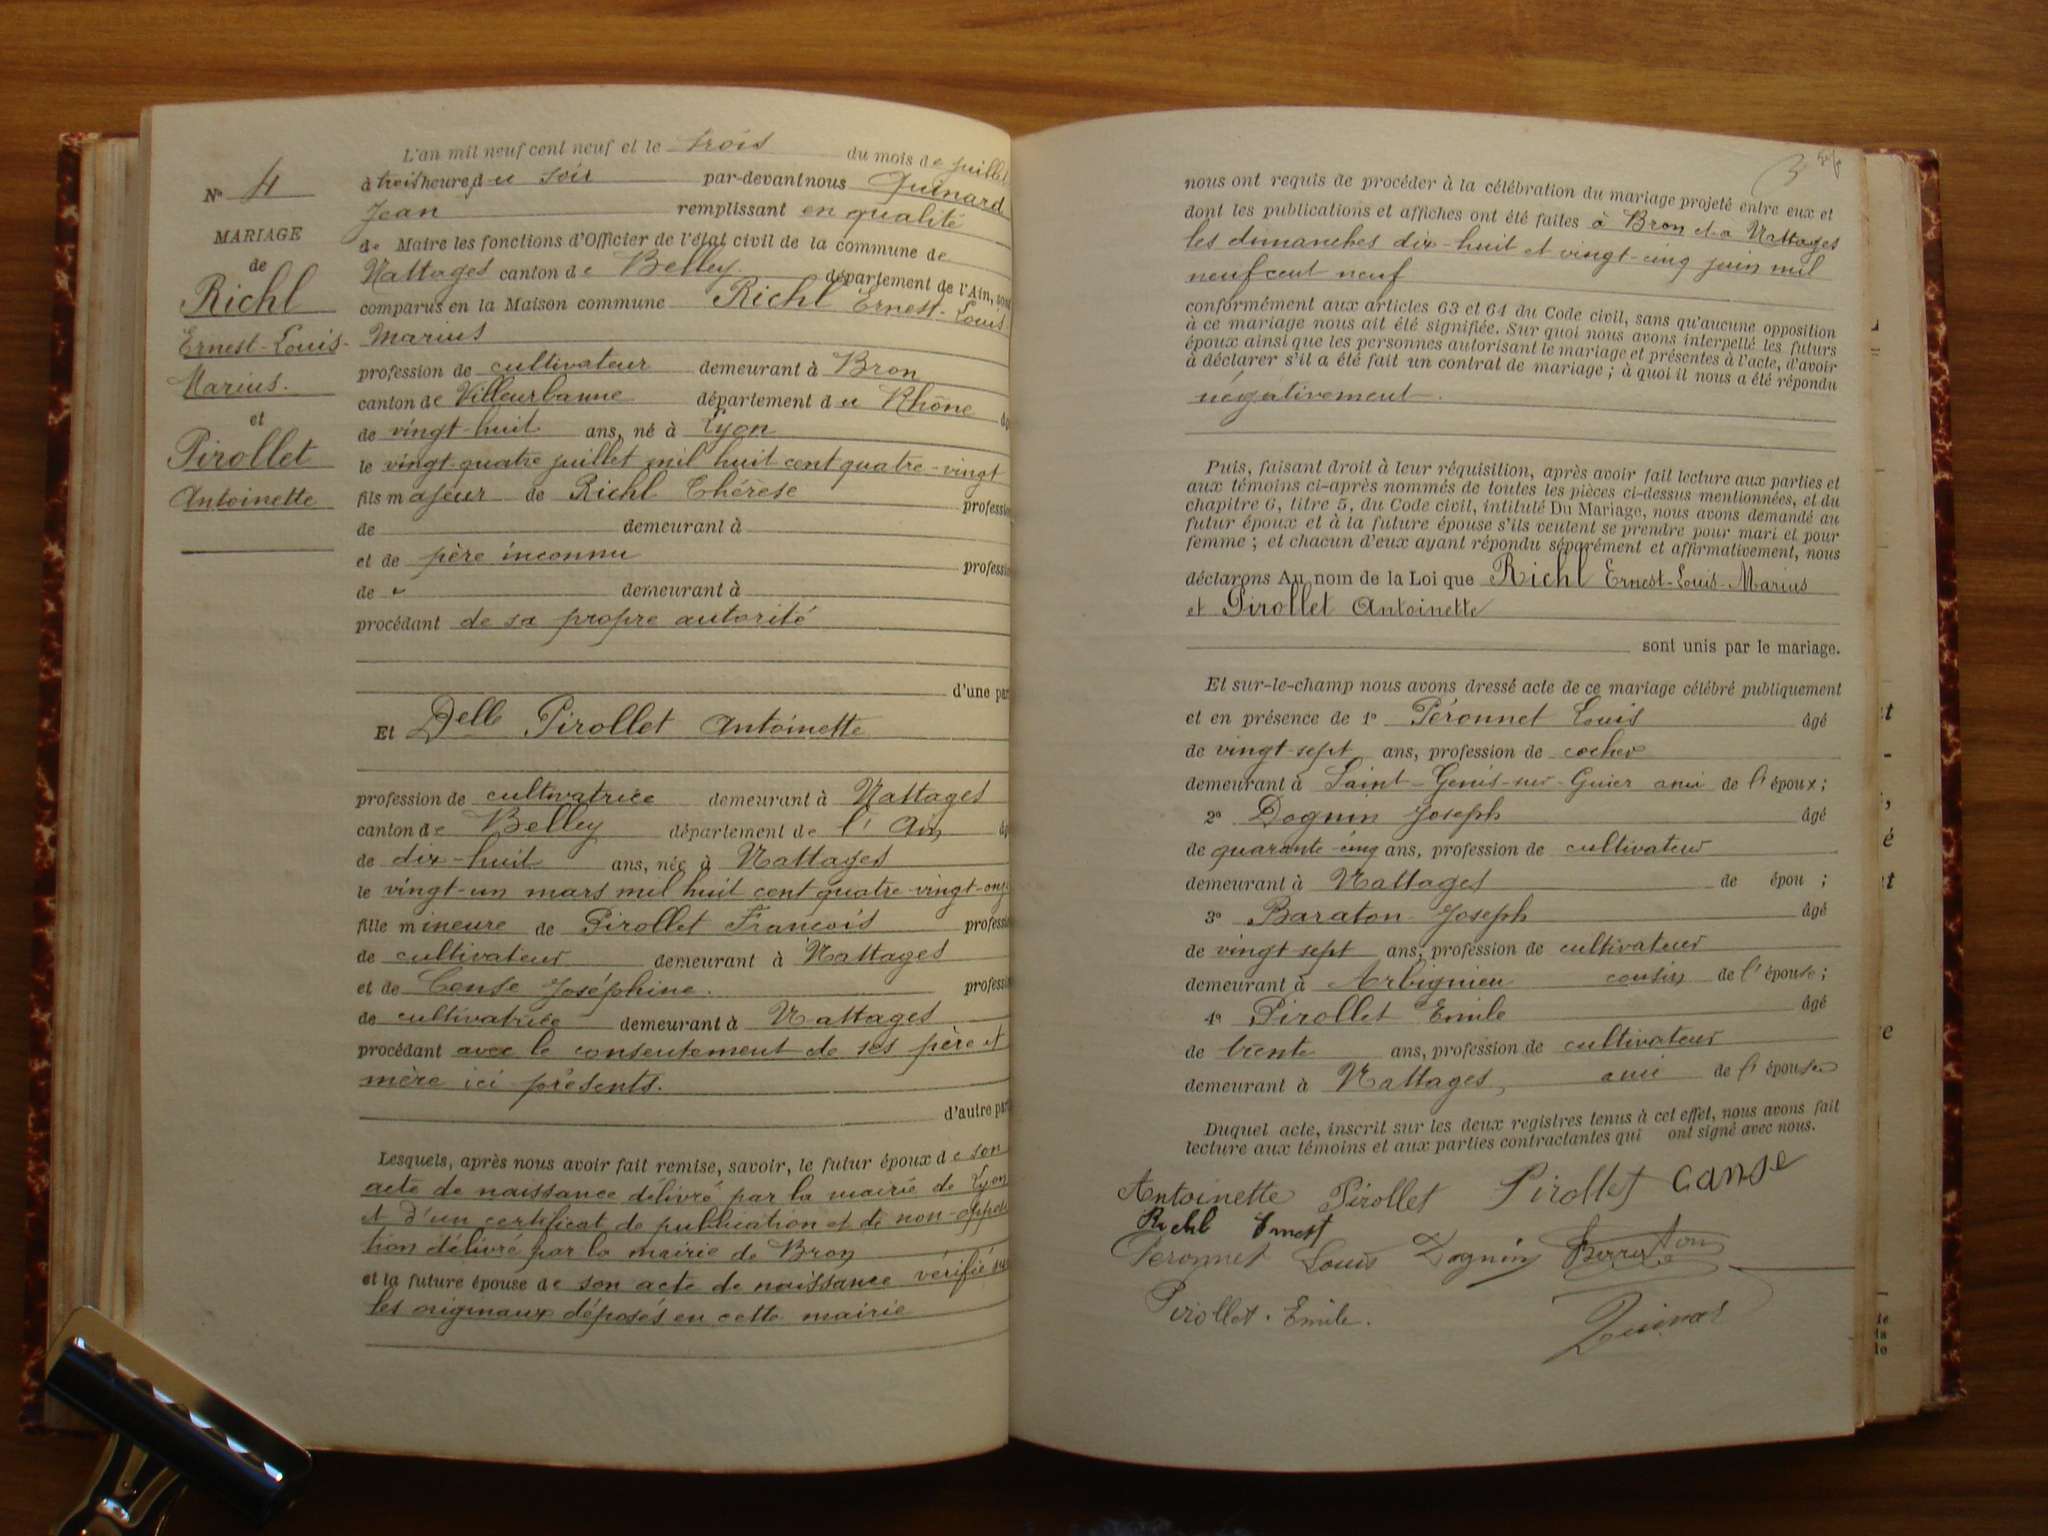 N° 4
MARIAGE
de
Richl
Ernest-Louis-
Marius.
et
Pirollet
Antoinette
L'an mil neuf cent neuf et le trois du mois de juillet
à trois heures du soir par-devant nous Quinard
Jean remplissant en qualité
de Maire les fonctions d'Officier de l'état civil de la commune de
Nattages canton de Belley département de l'Ain, sont
comparus en la Maison commune Richl Ernest-Louis-
Marius
profession de cultivateur demeurant à Bron
canton de Villeurbanne département du Rhône
de vingt-huit ans, né à Lyon
le vingt-quatre juillet mil huit cent quatre-vingt
fils majeur de Richl Thérèse profession
de demeurant à
et de père inconnu profession
de demeurant à
procédant de sa propre autorité
d'une par
Et Delle Pirollet Antoinette
profession de cultivatrice demeurant à Nattages
canton de Belley département de l'Ain
de dix-huit ans, née à Nattages
le vingt-un mars mil huit cent quatre-vingt-onze
fille mineure de Pirollet François profession
de cultivateur demeurant à Nattages
et de Canse Joséphine. profession
de cultivatrice demeurant à Nattages
procédant avec le consentement de ses père et
mère ici présents.
d'autre part
Lesquels, après nous avoir fait remise, savoir, le futur époux de son
acte de naissance délivré par la mairie de Lyon
et d'un certificat de publication et de non-oppo
tion délivré par la mairie de Bron
et la future épouse de son acte de naissance vérifié sur
les originaux déposés en cette mairie
nous ont requis de procéder à la célébration du mariage projeté entre eux et
dont les publications et affiches ont été faites à Bron et à Nattages
les dimanches dix-huit et vingt-cinq juin mil
neuf cent neuf
conformément aux articles 63 et 64 du Code civil, sans qu'aucune opposition
à ce mariage nous ait été signifiée. Sur quoi nous avons interpellé les futurs
époux ainsi que les personnes autorisant le mariage et présentes à l'acte, d'avoir
à déclarer s'il a été fait un contrat de mariage ; à quoi il nous a été répondu
négativement.
Puis, faisant droit à leur réquisition, après avoir fait lecture aux parties et
aux témoins ci-après nommés de toutes les pièces ci-dessus mentionnées, et du
chapitre 6, titre 5, du Code civil, intitulé Du Mariage, nous avons demandé au
futur époux et à la future épouse s'ils veulent se prendre pour mari et pour
femme ; et chacun d'eux ayant répondu séparément et affirmativement, nous
déclarons Au nom de la Loi que Richl Ernest-Louis-Marius
et Pirollet Antoinette
sont unis par le mariage.
Et sur-le-champ nous avons dressé acte de ce mariage célébré publiquement
et en présence de 1° Péronnet Louis âgé
de vingt-sept ans, profession de cocher
demeurant à Saint-Genis-sur-Guier ami de l'époux ;
2° Dognin Joseph âgé
de quarante-cinq ans, profession de cultivateur
demeurant à Nattages de épou ;
3° Baraton Joseph âgé
de vingt sept ans, profession de cultivateur
demeurant à Arbignieu cousin de l'épouse ;
4° Pirollet Emile âgé
de trente ans, profession de cultivateur
demeurant à Nattages, ami de l'épouse
Duquel acte, inscrit sur les deux registres tenus à cet effet, nous avons fait
lecture aux témoins et aux parties contractantes qui ont signé avec nous.
Antoinette Pirollet Pirollet Canse
Richl Ernest
Peronnet Louis Dognin
Pirollet. Emile. Quinard